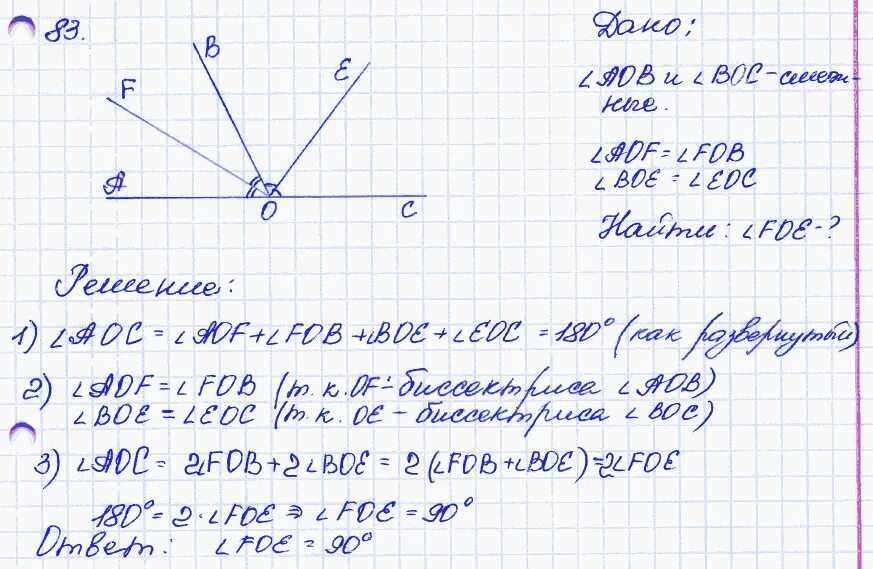 83.
B
E
F
A
O
C
Дано:
∠AOB и ∠BOC – смеж-
ные.
∠AOF = ∠FOB
∠BOE = ∠EOC
Найти: ∠FOE - ?
Решение:
1) ∠AOC = ∠AOF + ∠FOB + ∠BOE + ∠EOC = 180° (как развернутый)
2) ∠AOF = ∠FOB (т.к. OF – биссектриса ∠AOB)
∠BOE = ∠EOC (т.к. OE – биссектриса ∠BOC)
3) ∠AOC = 2∠FOB + 2∠BOE = 2(∠FOB + ∠BOE) = 2∠FOE
180° = 2·∠FOE ⇒ ∠FOE = 90°
Ответ: ∠FOE = 90°